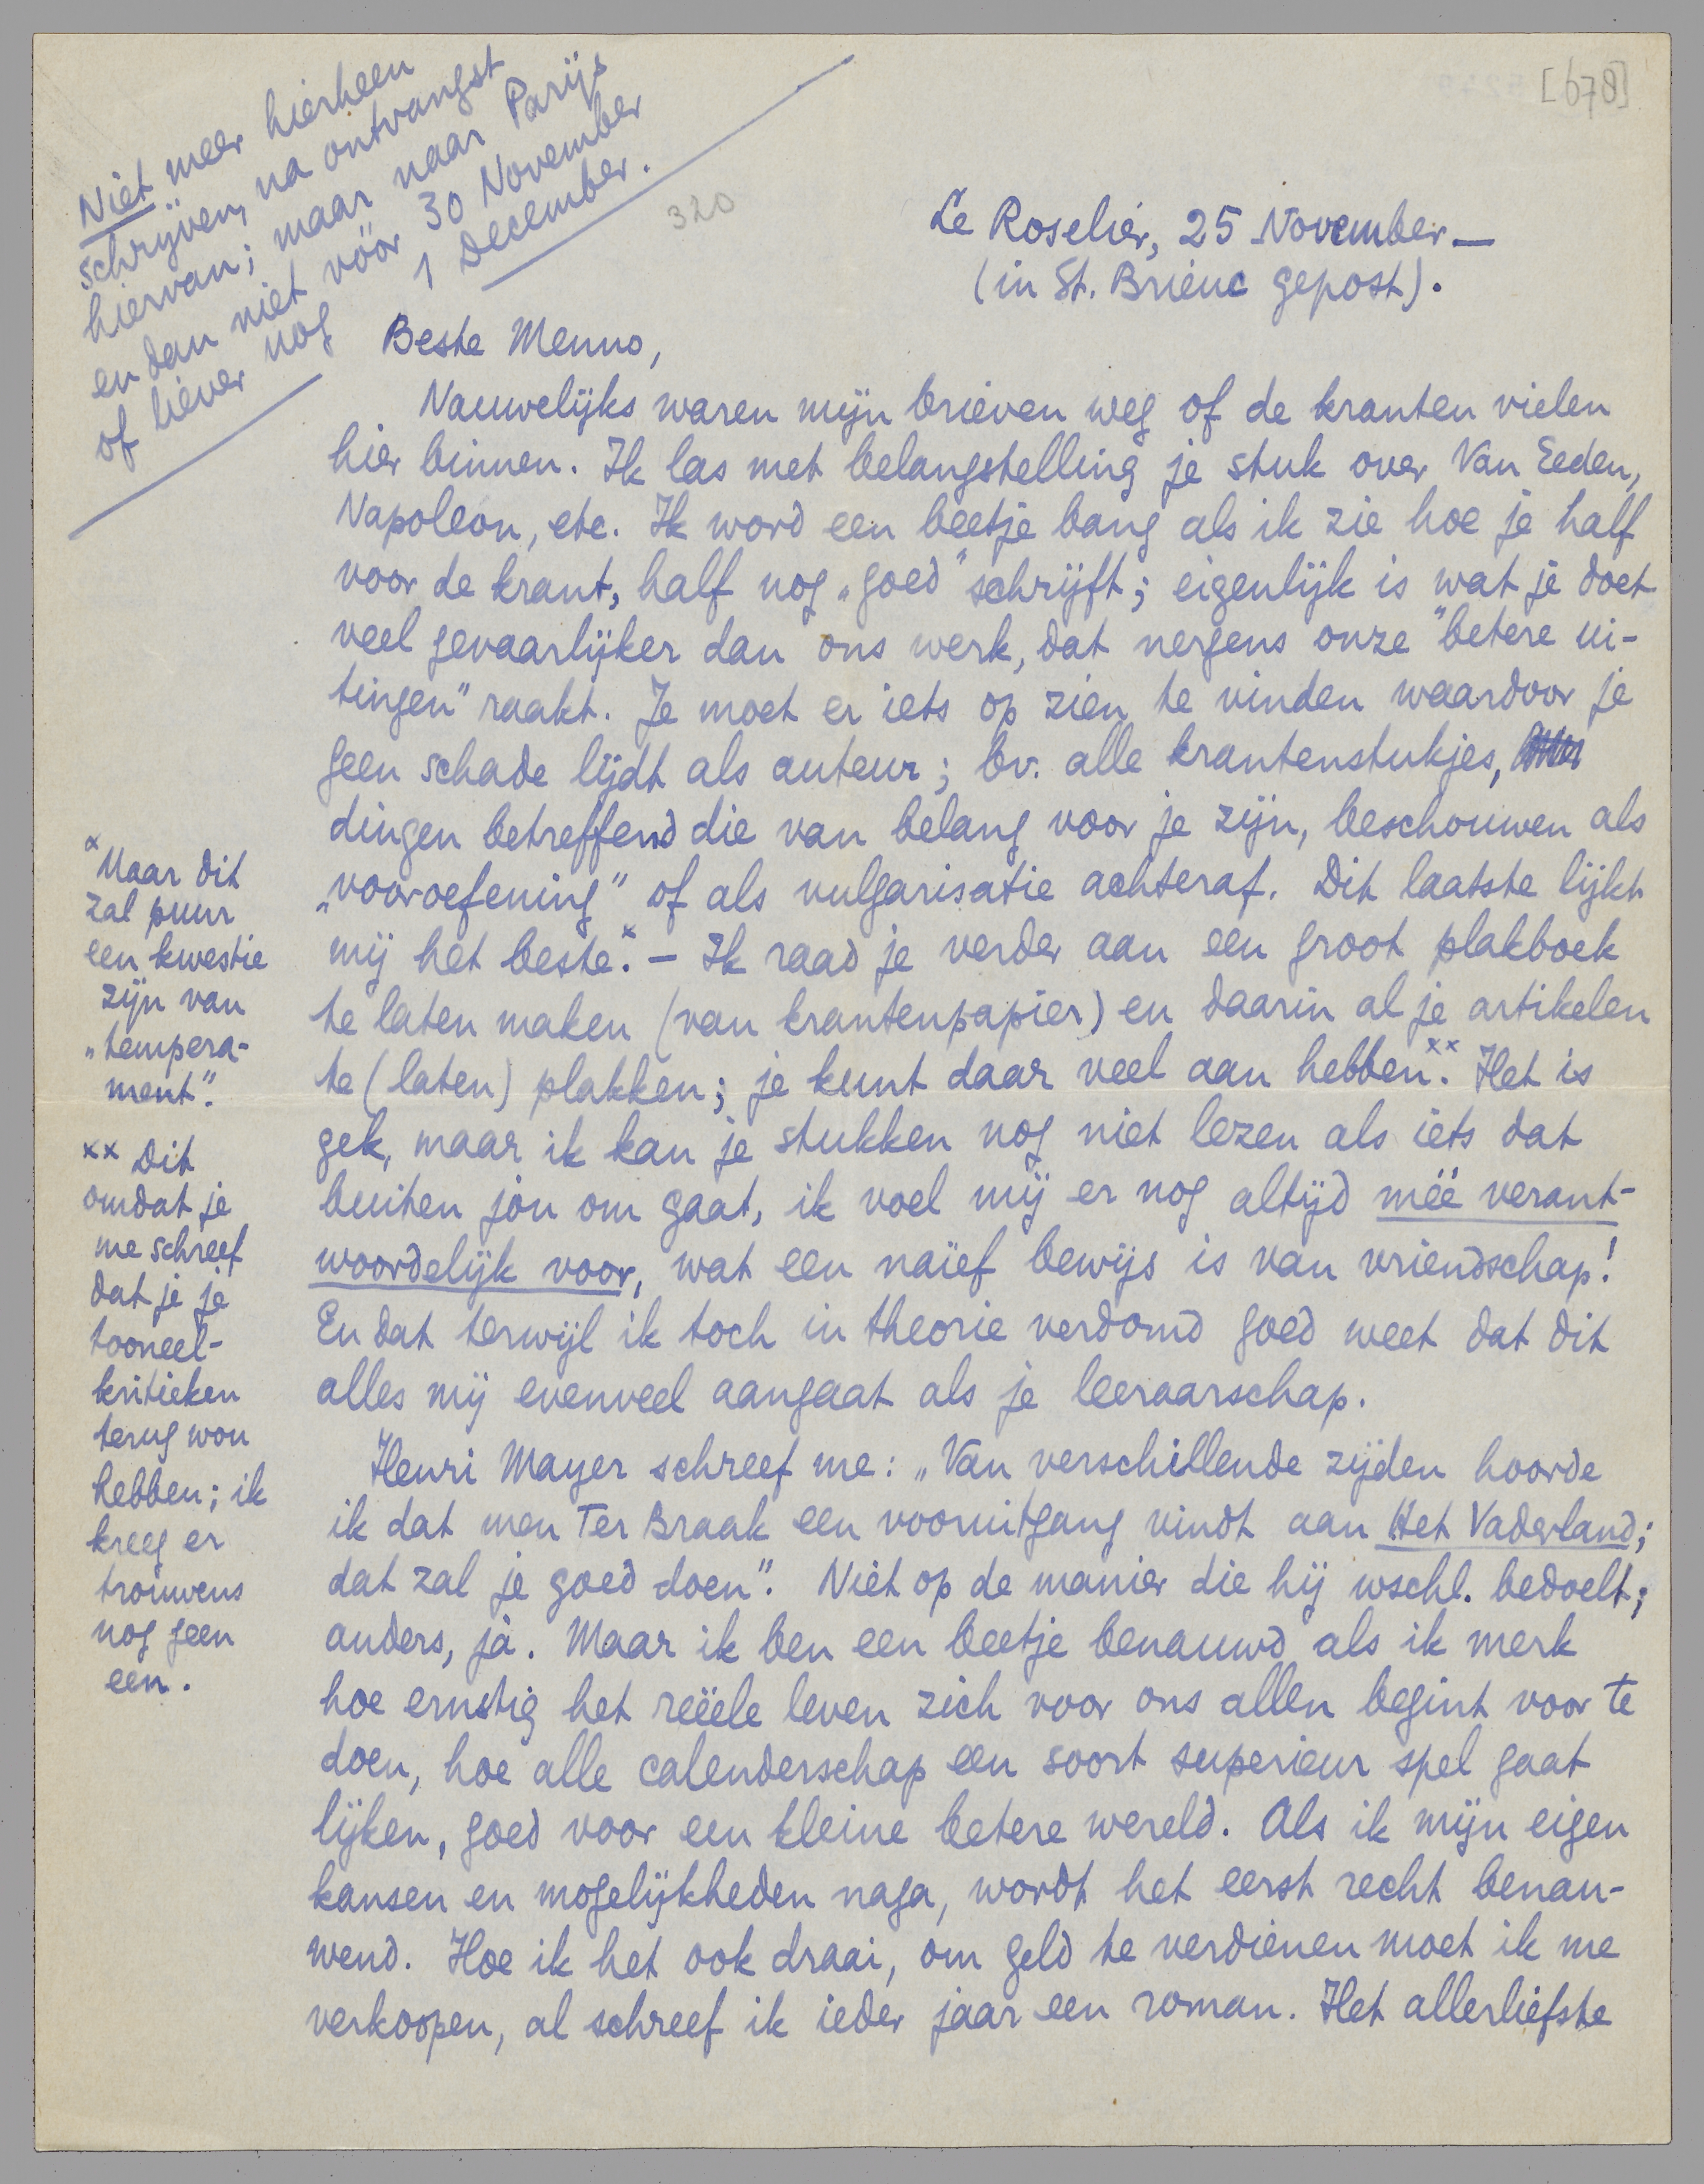 [678]
Niet meer hierheen
schrijven, na ontvangst
hiervan; maar naar Parijs
en dan niet vóór 30 November
of liever nog 1 December.
320
Le Roselier, 25 November. —
(in St. Brieuc gepost).
Beste Menno,
Nauwelijks waren mijn brieven weg of de kranten vielen
hier binnen. Ik las met belangstelling je stuk over Van Eeden,
Napoleon, etc. Ik word een beetje bang als ik zie hoe je half
voor de krant, half nog „goed" schrijft; eigenlijk is wat je doet
veel gevaarlijker dan ons werk, dat nergens onze "betere ui-
tingen" raakt. Je moet er iets op zien te vinden waardoor je
geen schade lijdt als auteur; bv. alle krantenstukjes,
dingen betreffend die van belang voor je zijn, beschouwen als
„vooroefening" of als vulgarisatie achteraf. Dit laatste lijkt
mij het beste.x – Ik raad je verder aan een groot plakboek
te laten maken (van krantenpapier) en daarin al je artikelen
te (laten) plakken; je kunt daar veel aan hebben.xx Het is
gek, maar ik kan je stukken nog niet lezen als iets dat
buiten jou om gaat, ik voel mij er nog altijd méé verant-
woordelijk voor, wat een naïef bewijs is van vriendschap!
En dat terwijl ik toch in theorie verdomd goed weet dat dit
alles mij evenveel aangaat als je leeraarschap.
Henri Mayer schreef me: „Van verschillende zijden hoorde
ik dat men Ter Braak een vooruitgang vindt aan Het Vaderland;
dat zal je goed doen". Niet op de manier die hij wschl. bedoelt;
anders, ja. Maar ik ben een beetje benauwd als ik merk
hoe ernstig het reëele leven zich voor ons allen begint voor te
doen, hoe alle calenderschap een soort superieur spel gaat
lijken, goed voor een kleine betere wereld. Als ik mijn eigen
kansen en mogelijkheden naga, wordt het eerst recht benau-
wend. Hoe ik het ook draai, om geld te verdienen moet ik me
verkoopen, al schreef ik ieder jaar een roman. Het allerliefste
x Maar dit
zal puur
een kwestie
zijn van
„tempera-
ment".
xx Dit
omdat je
me schreef
dat je je
tooneel-
kritieken
terug wou
hebben; ik
kreeg er
trouwens
nog geen
een.